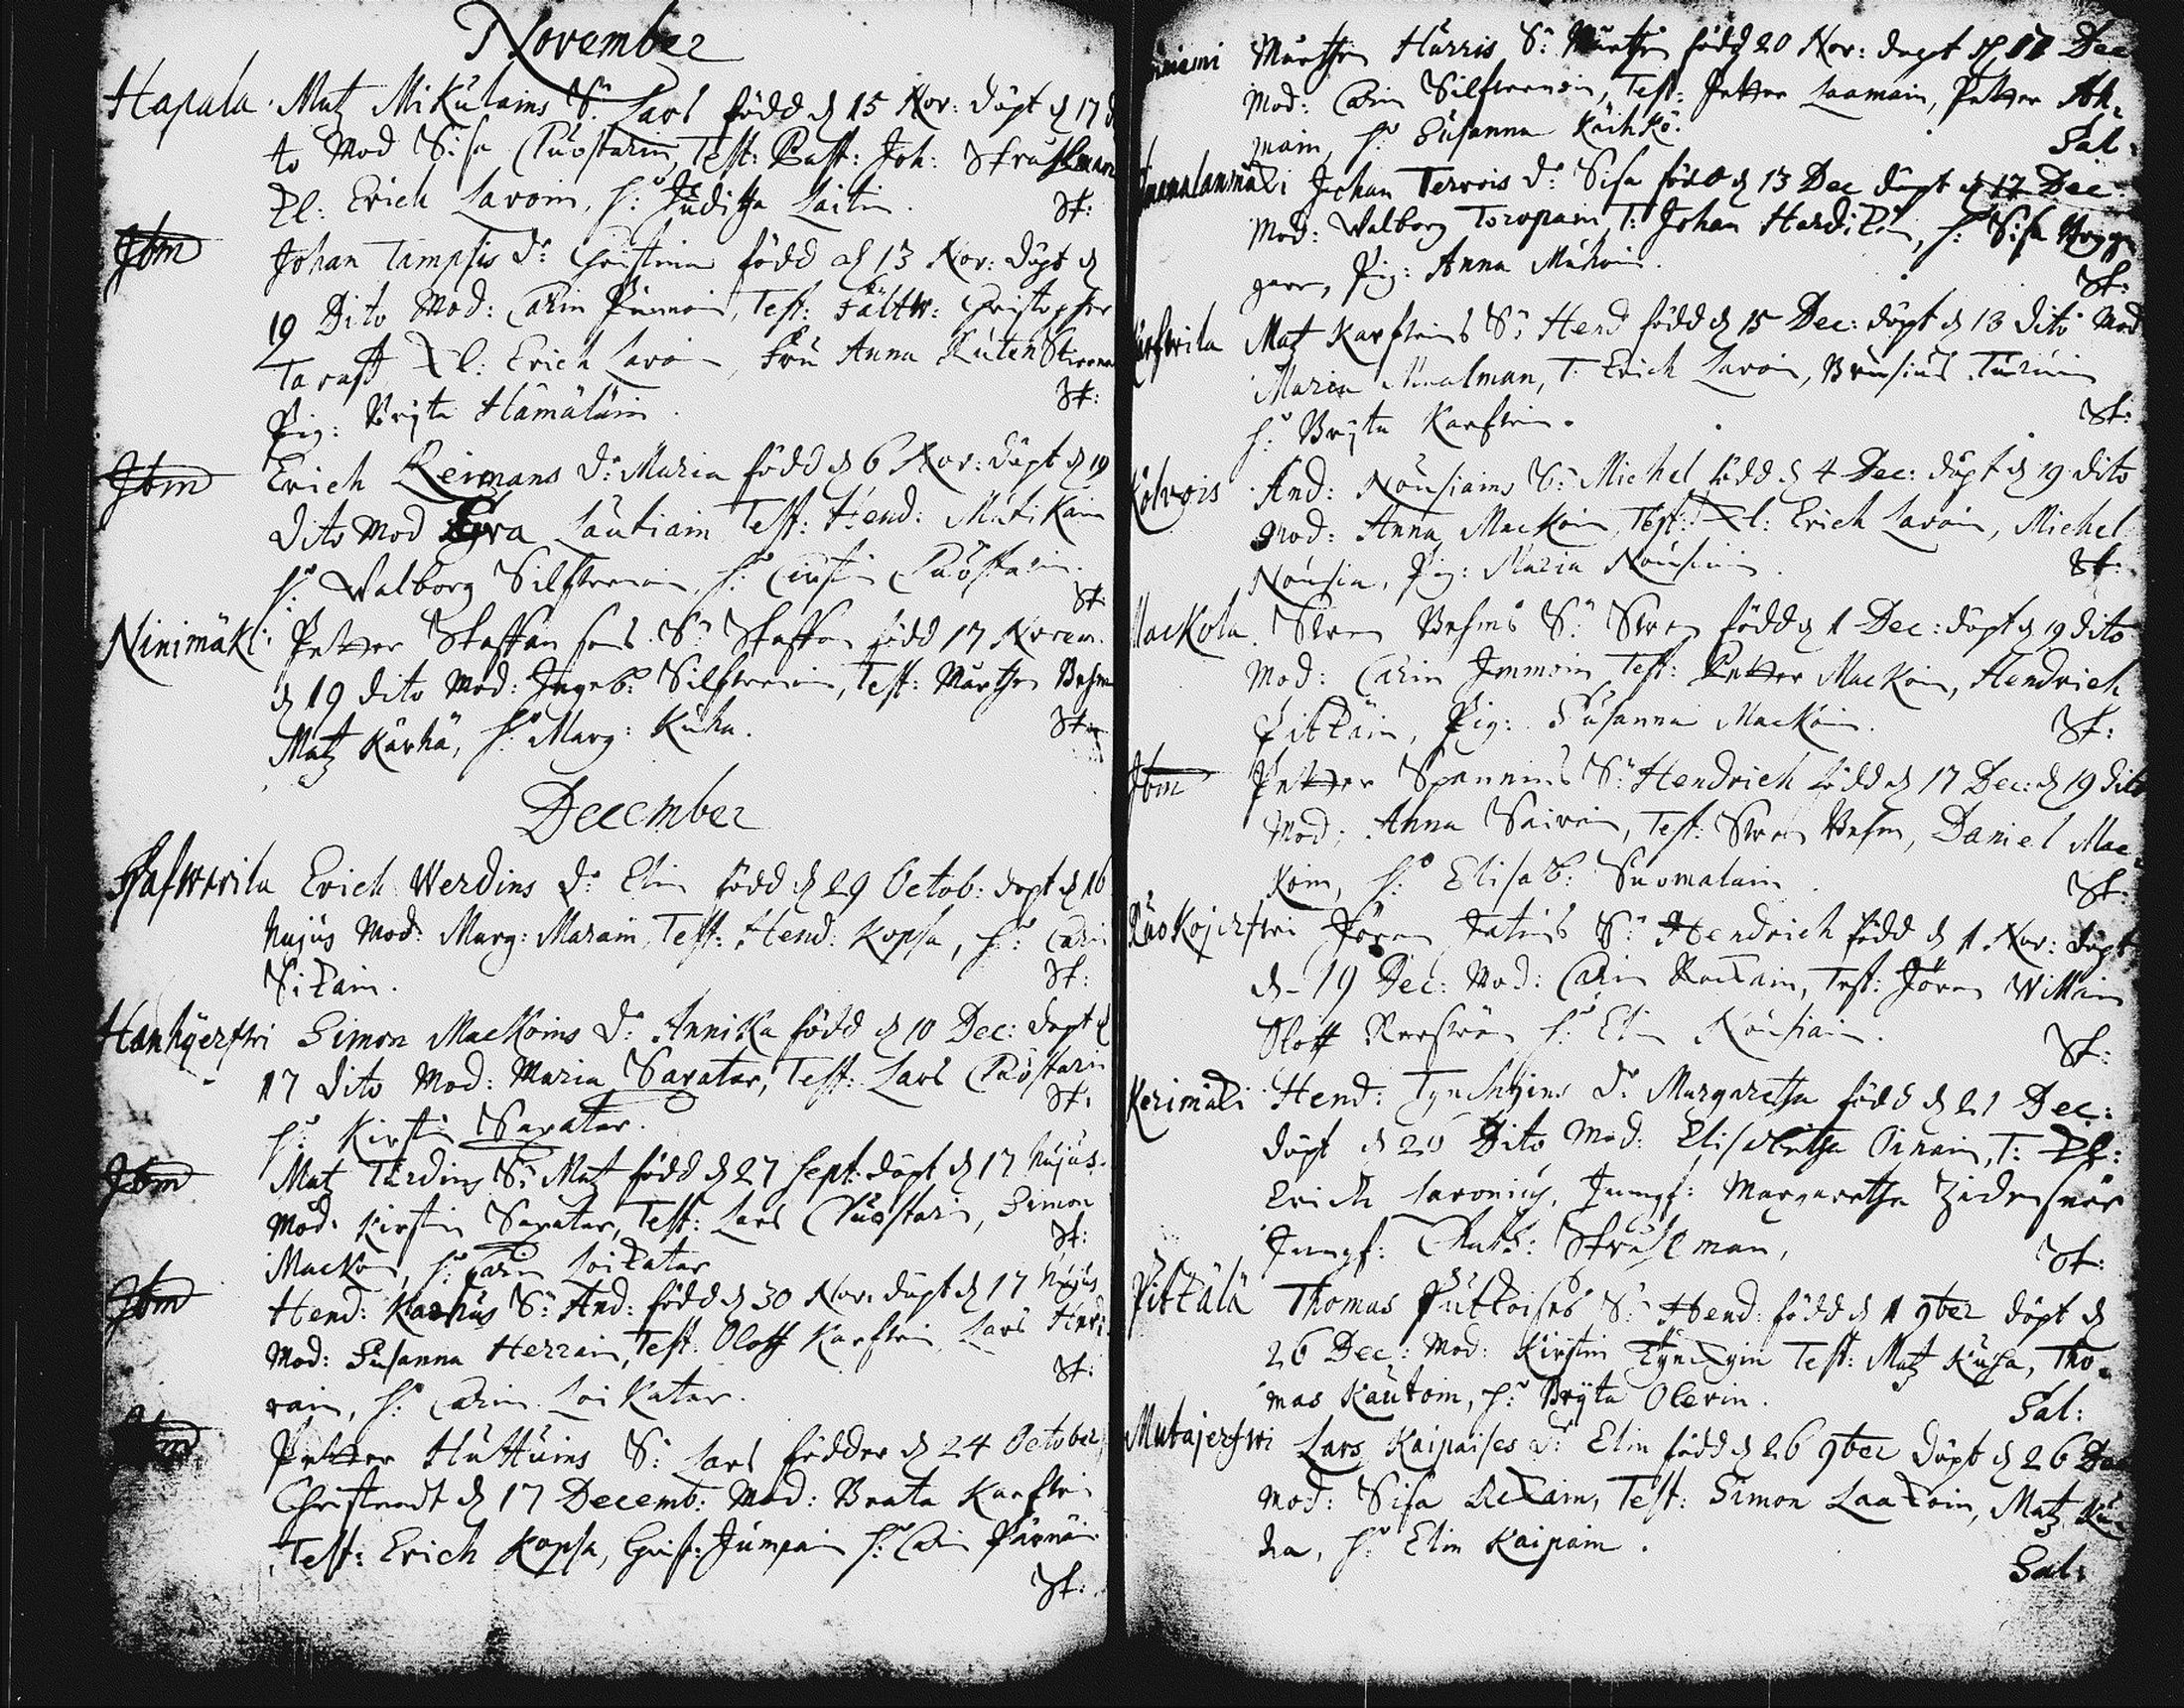 November
Hapala. Matz Mikulains S: Lars född d 15 Nov: döpt d 17 di
to Mod Sisa Puostarin, Test: Past: Joh: Strahlman
Cl: Erich Lavoin, h: Juditha Laitin. St:
Ibm Johan Tampsis D: Christina född d 13 Nov: döpt d
19 Dito Mod: Carin Pärnäin, Test: Fältw: Christopher
Tarast, Cl: Erich Lavoin, Fru Anna Rutenstierna
Pig: Bryta Hämäläin. St:
Ibm Erich Reimans D: Maria född d 6 Nov: döpt d 19
dito Mod Eva Lautiain Test: Hend: Mutikain
h: Walborg Silfvenoin, h: Cirstin Puostarin. St:
Ninimäki. Petter Staffansons S: Staffan född 17 Novem.
d 19 dito Mod: Ingeb: Silfvenoin, Test: Mårthen Behm
Matz Kärhä, h: Marg: Kuha. St:
December
Rafwila Erich Werdins D: Elin född d 29 Octob: döpt d 16
hujus Mod: Marg: Marain, Test: Hend: Kopsa, h: Carin
Sikain. St:
Hanhijerfwi Simon Mackoins D: Annika född d 10 Dec: döpt d
17 dito Mod: Maria Saxatar, Test: Lars Puostarin
h: Kirstin Saxatar. St:
Ibm Matz Turdins S: Matz född d 27 Sept: döpt d 17 hujus.
Mod: Kirstin Saxatar, Test: Lars Puostarin, Simon
Mackoin, h: Carin Loikatar St:
Ibm Hend: Karhus S: And: född d 30 Nov: döpt d 17 hujus
Mod: Susanna Herrain, Test: Oloff Karstein Lars Hend
rain, h: Carin Loikatar. St:
Ibm Petter Huttuins S: Lars födder d 24 October
Christnadt d 17 Decemb: Mod: Beata Karstein
Test: Erich Kopsa, Grist: Jumpain h: Carin Pärnäin
St:
niemi Mårthen Hurris S: Mårthen född 20 Nov: döpt d 17 Dec
Mod: Carin Silfvenoin, Test: Petter Laamain, Petter Ah,
main, h: Susanna Käihkö. Sal:
Johan Tervois D: Sisa född d 13 Dec döpt d 17 Dec:
Mod: Walborg Toropain T: Johan Hardikain, h: Sisa Bryg
gare, Pig: Anna Muhoin. St:
Matz Karsteins S: Hend född d 15 Dec: döpt d 13 dito Mod
Maria Maalman, T: Erich Lavoin, Brusius Turuin
h: Bryta Karstein. St:
Kolvois And: Nousiains S: Michel född d 4 Dec: döpt d 19 dito
Mod: Anna Mackoin, Test: Cl: Erich Lavoin, Michel
Nousia, Pig: Maria Nousiain. St:
Mackola. Sven Behms S: Sven född d 1 Dec: döpt d 19 dito
Mod: Carin Immoin Test: Petter Mackoin, Hendrich
Pitkäin, Pig: Susanna Mackoin. St:
Ibm Petter Spennins S: Hendrich född d 17 Dec: d 19 dito
Mod; Anna Sairain, Test: Sven Behm, Daniel Mac-
koin, h: Elisab: Suomalain. St:
Ruokojerfwi Jöran Jatins S: Hendrich född d 1 Nov: döpt
d - 19 Dec: Mod: Carin Rockain, Test: Jöran Willain
Oloff h: Elin Nousiain. St:
Kerimäki Hend: Tynckyins D: Margaretha född d 21 Dec:
döpt d 26 Dito Mod: Elisabetha Oinain, T: Cl:
Erich Lavonius, Jungf: Margaretha
Jungf: Cath: Strahlman, St:
Pitkälä Thomas Puttoises S: Hend: född d 1 9ber döpt d
26 Dec: Mod: Kirstin Tynckyin Test: Matz Kuha, Tho-
mas Kautoin, h: Bryta Olevin. Sal:
Mutajerfwi Lars Kaipaises D: Elin född d 26 9ber döpt d 26 Dec
Mod: Sisa Reckain, Test: Simon Laackoin, Matz Ku-
ha, h: Elin Kaipain.
Sal: